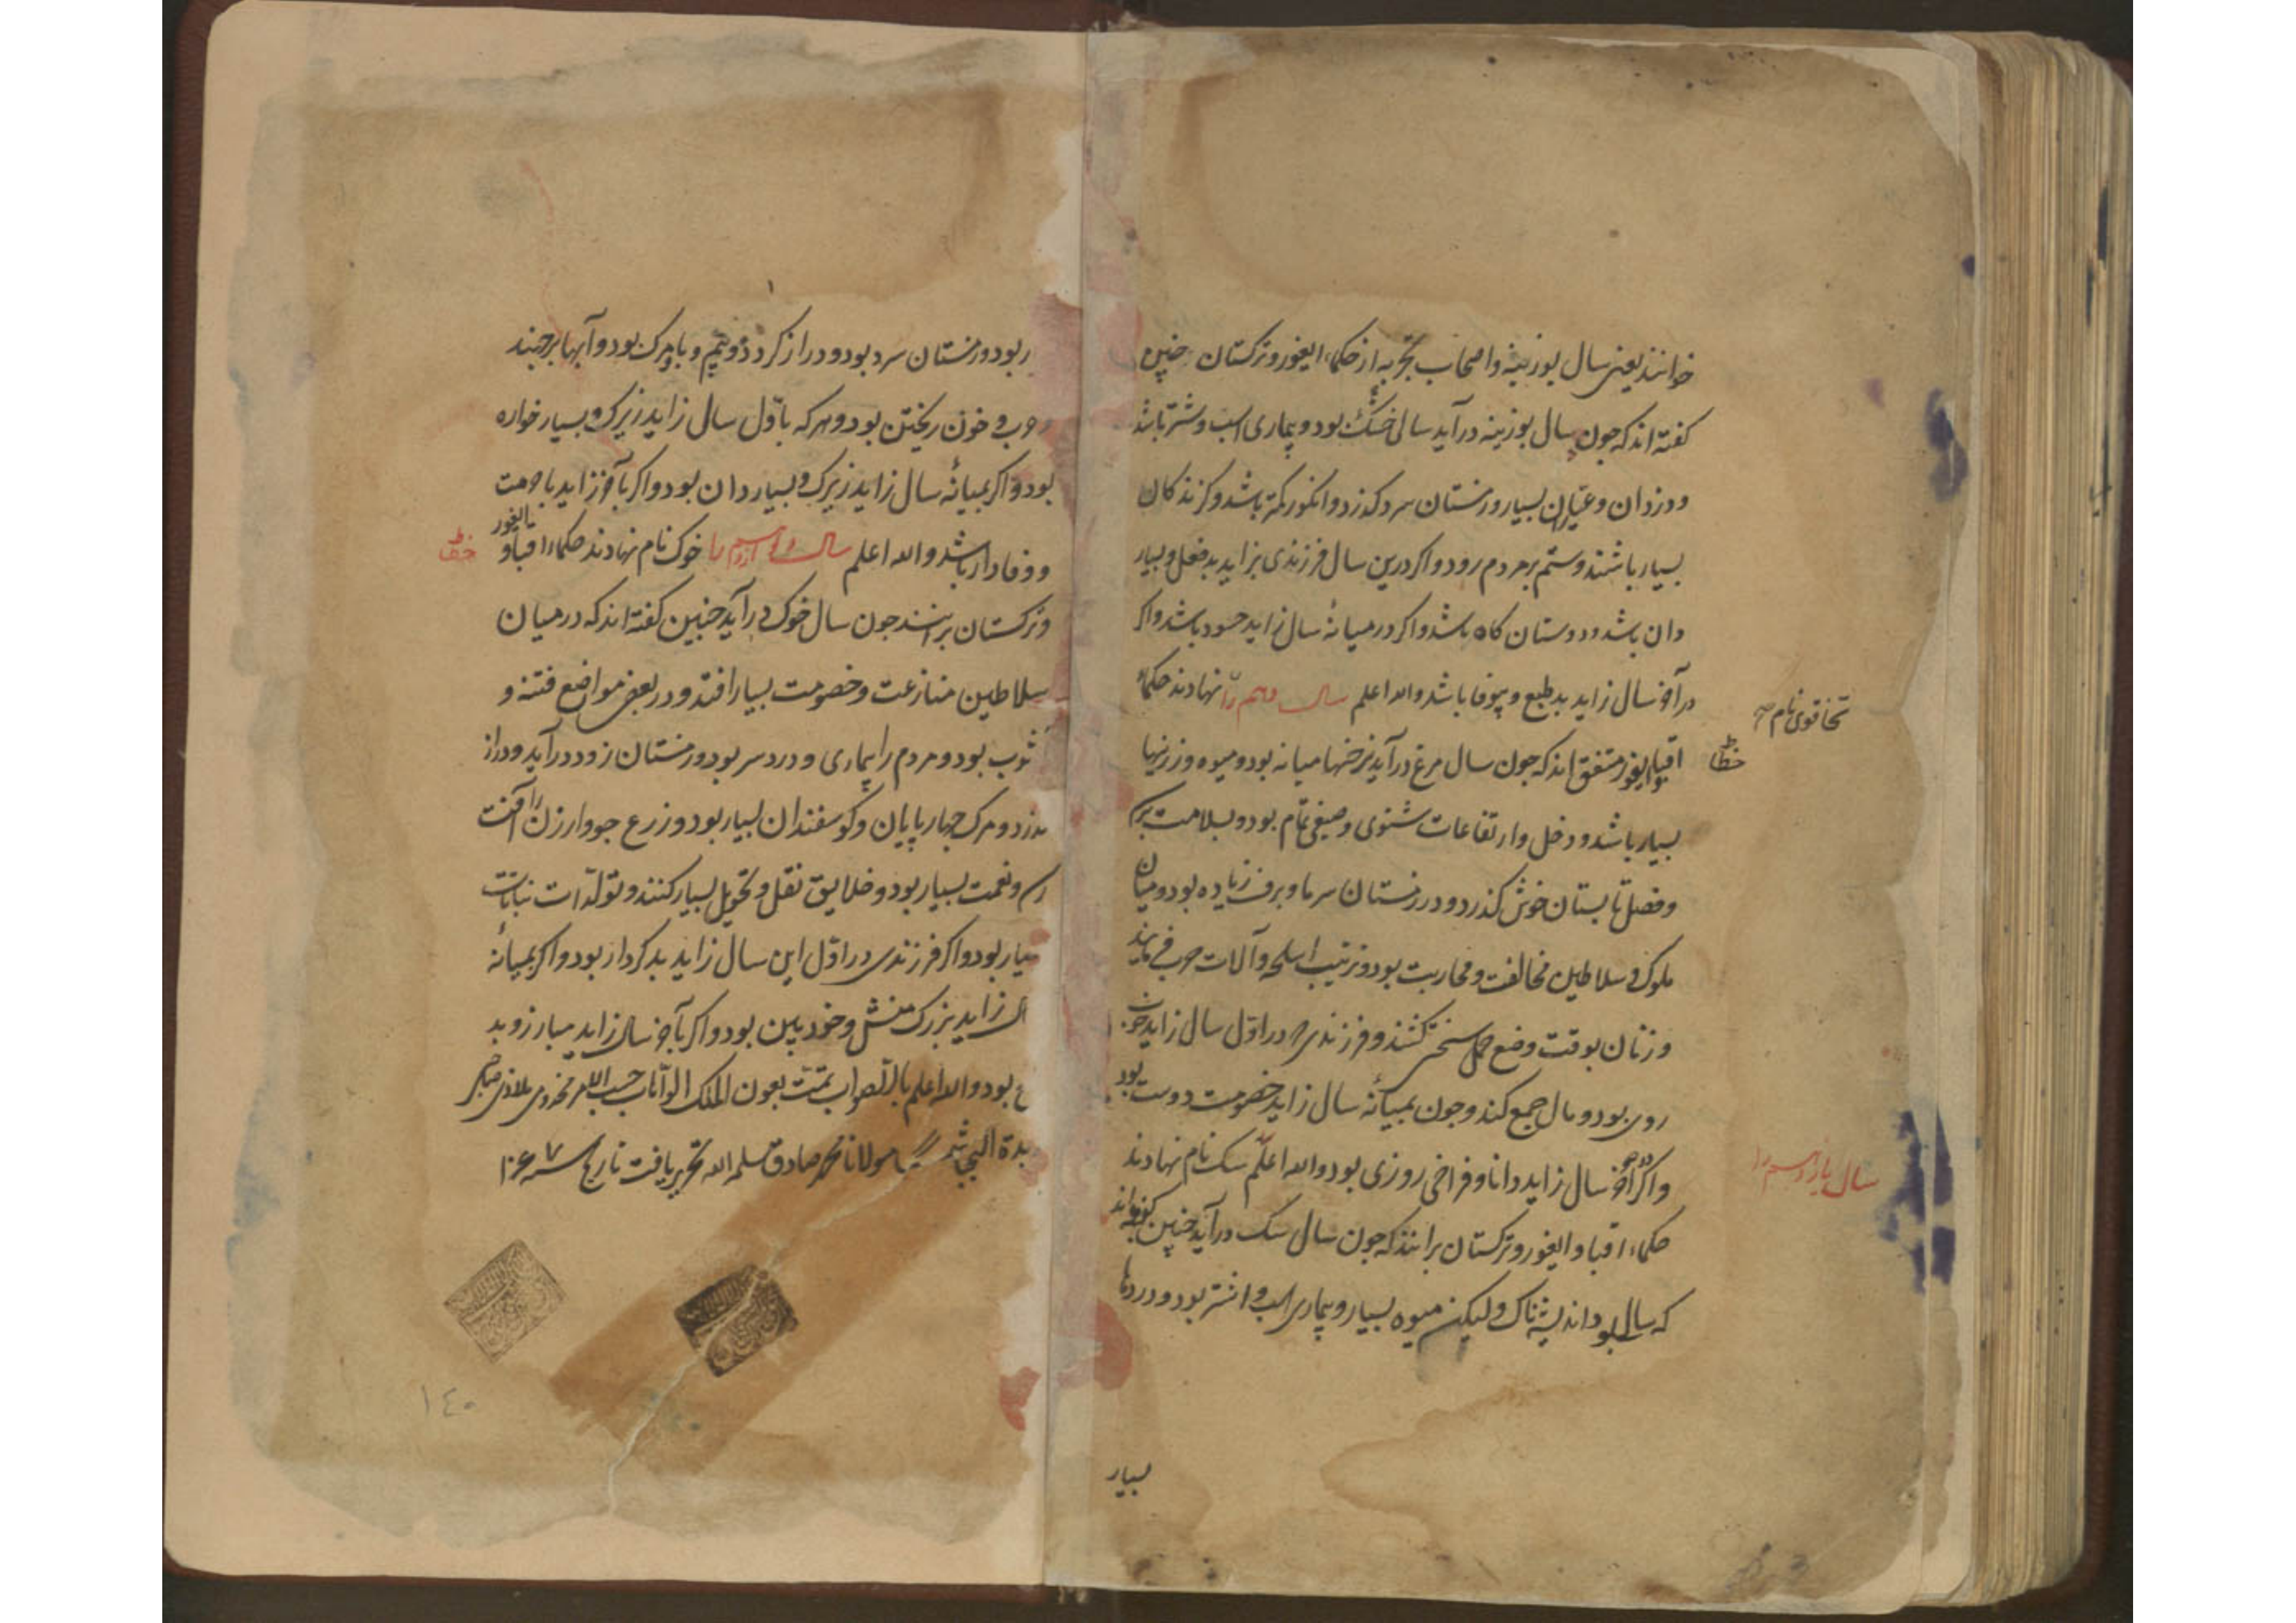 خوانند یعنی سال بوزینه و اصحاب تجربه از حکماء ایغور و ترکستان چنین
کفته اند که چون سال بوزینه درآید سالی خشک بود و بیماری اسب و شتر باشد
و دزدان و عیّاران بسیار و زمستان سرد کذرد و انکور کمتر باشد و کزندکان
بسیار باشند و ستم بر مردم رود و اکر درین سال فرزندی بزاید بدفعل و بسیار
دان باشد و دوستان کاه باشد و اکر در میانهٔ سال زاید حسود باشد و اکر
در آخر سال زاید بدطبع و بیوفا باشد والله اعلم سال دهم را نهادند حکماء
تخاقوی نام
خطا
اقبا و ایغور متفق اند که چون سال مرغ درآید نرخها میانه بود و میوه و زرینها
بسیار باشد و دخل و ارتفاعات شتوی و صیفی تمام بود و بسلامت
و فصل تابستان خوش کذرد و در زمستان سرما و برف زیاده بود و میان
ملوک و سلاطین مخالفت و محاربت بود و ترتیب اسلحه و آلات حرب
و زنان بوقت وضع حمل سختی کشند و فرزندی که در اوّل سال زاید خوب
روی بود و مال جمع کند و چون بمیانهٔ سال زاید خصومت دوست بود
و اکر آخر سال زاید دانا و فراخ روزی بود والله اعلم سک نام نهادند
سال یازدهم را
حکماء اقبا و ایغور و ترکستان برانند که چون سال سک درآید چنین کفته اند
که سالی بود اندیشناک ولیکن میوه بسیار و بیماری اسب و اشتر بود و دردها
بسیار
ر بود و زمستان سرد بود و دراز کردد و بیم وبا و مرک بود و آبها برجهند
حرب و خون ریختن بود و هر که باوّل سال زاید زیرک و بسیار خواره
بود و اکر بمیانهٔ سال زاید زیرک و بسیار دان بود و اکر بآخر زاید با
و وفادار باشد والله اعلم سال دوازدهم را خوک نام نهادند حکماء اقبا و
ایغور
خطا
و ترکستان برانند چون سال خوک درآید چنین کفته اند که در میان
سلاطین منازعت و خصومت بسیار افتد و در بعضی مواضع فتنه و
بود و مردم را بیماری و درد سر بود و زمستان زود درآید و دراز
و مرک چهارپایان و کوسفندان بسیار بود و زرع جو و ارزن را آفت
و نعمت بسیار بود و خلایق نقل و تحویل بسیار کنند و تولدات نباتات
بسیار بود و اکر فرزندی در اوّل این سال زاید بدکردار بود و اکر بمیانهٔ
سال زاید بزرک منش و خودبین بود و اکر بآخر سال زاید مبارز و بد
بود والله اعلم بالصواب تمّت بعون الملک الوهّاب حسب الامر مخدومی ملاذی
مولانا محمد صادق سلمه الله تحریر یافت تاریخ سنه ۱۰۶۷
۱٤۰